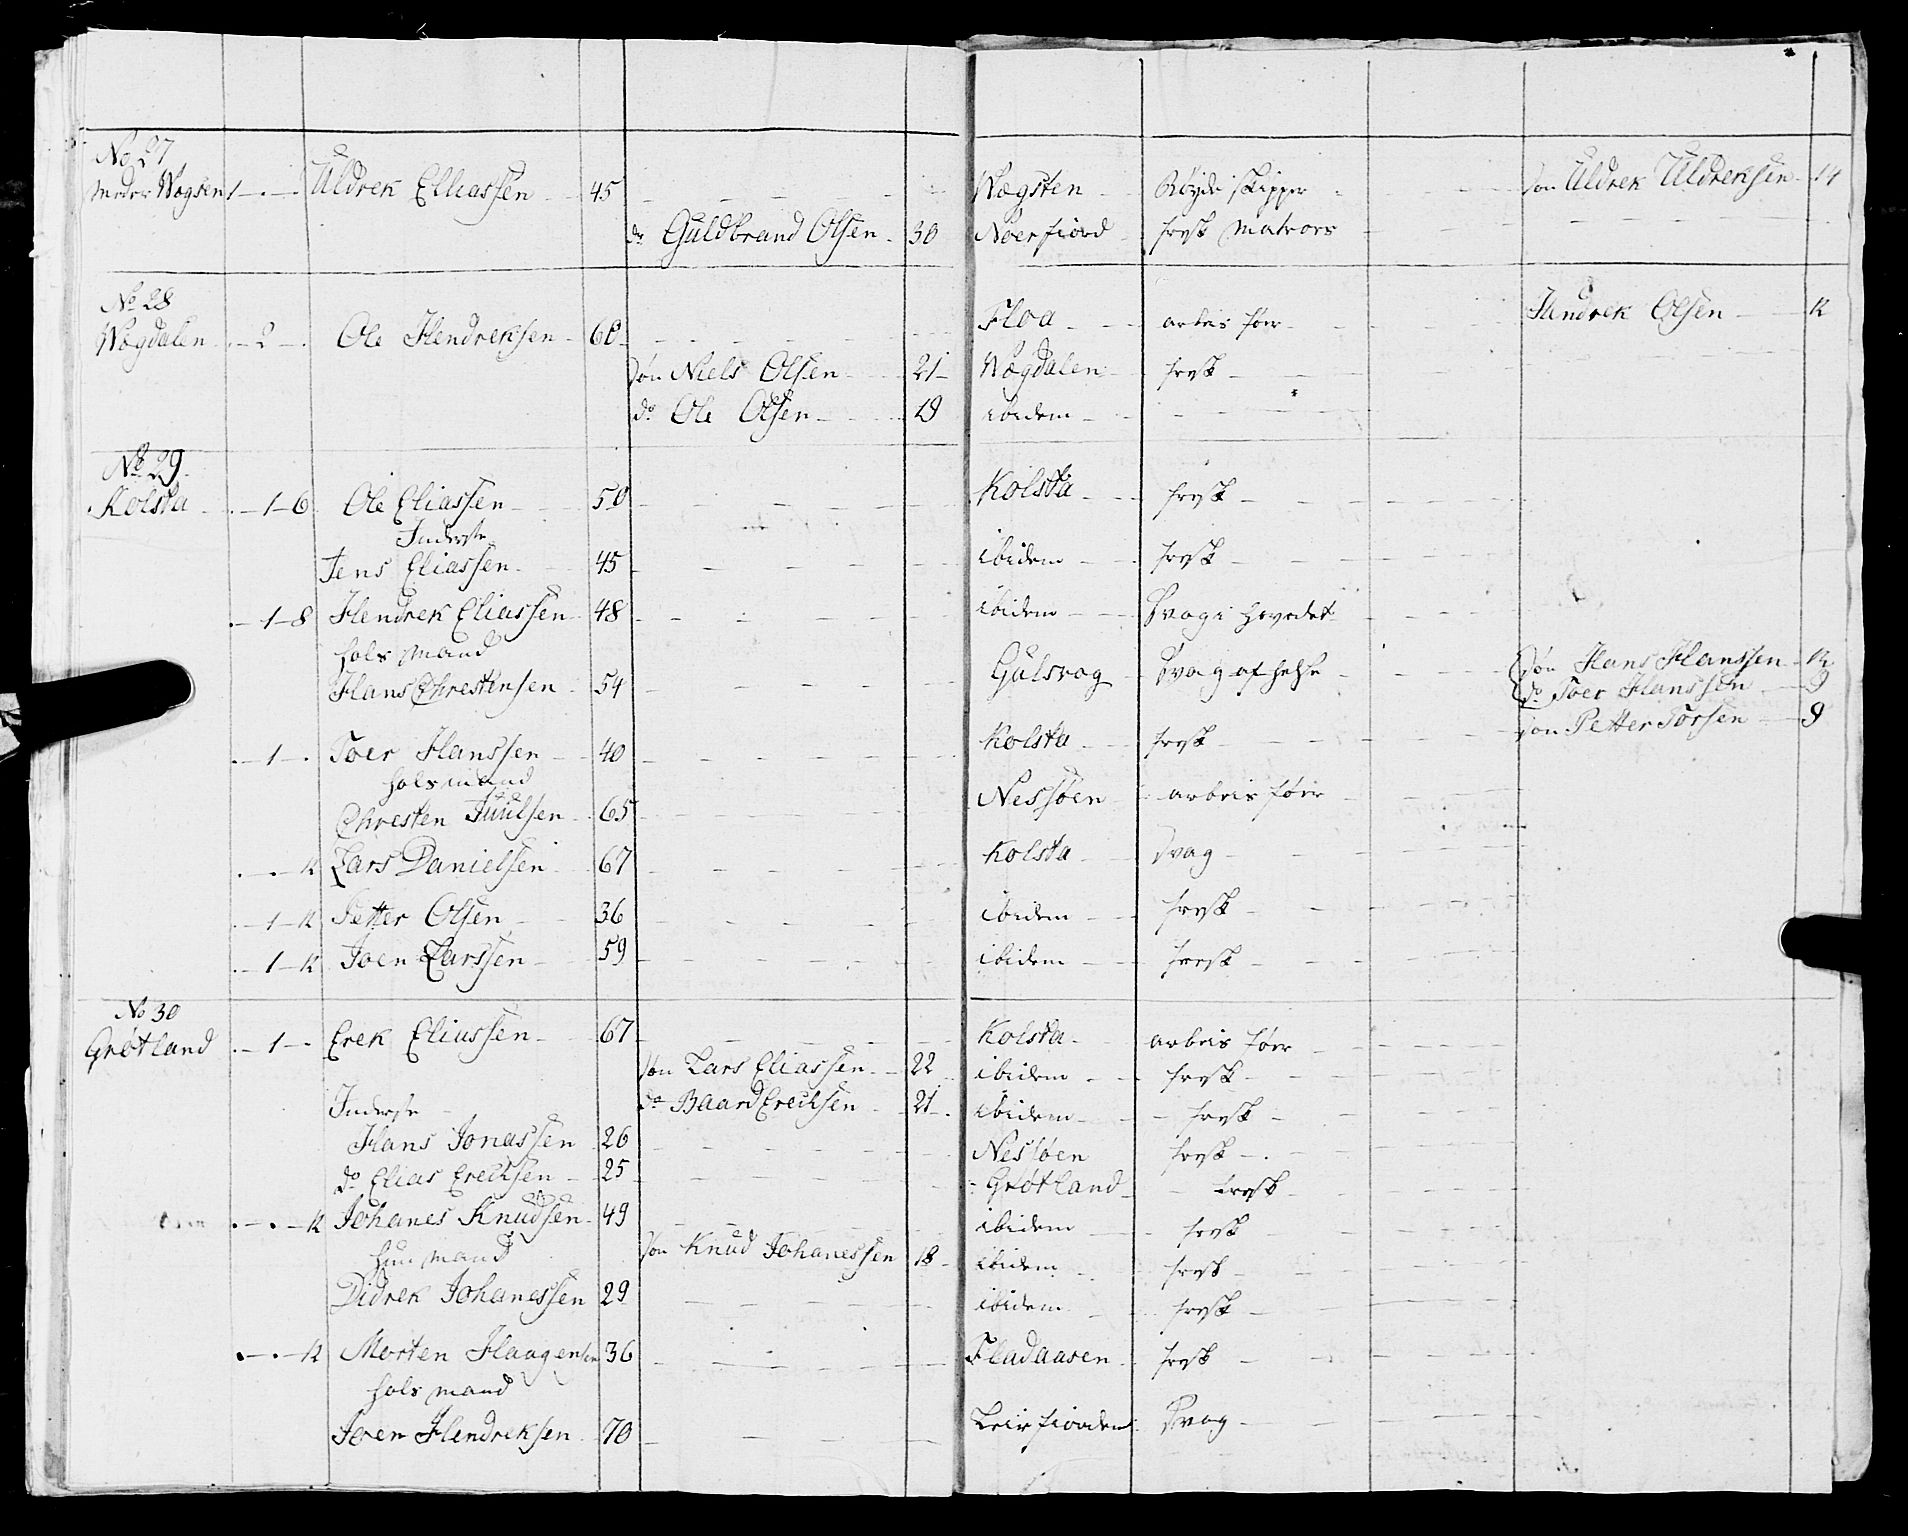 No 27
Wægsten 1 - . - Uldrek Elliassen 45 Wægsten Røyde skipper søn Uldrek Uldreksen 14
do Guldbrand Olsen 30 Noerfiord frisk matros
No 28
Wægdalen . - 2 - . Ole Hendreksen 60 Floa arbeis føer Hendrek Olsen 12
søn Niels Olsen 21 Wægdalen frisk
do Ole Olsen 19 ibidem
No 29
Kolsta . - 1 - 6 Ole Eliassen 50 Kolsta frisk
Inderste
Jens Eliassen 45 ibidem frisk
. - 1 - 8 Hendrek Eliassen 48 ibidem Svag i hovedet
hols mand
Hans Chrestensen 54 Gulsvog Svag af helse søn Hans Hanssen 12
do Toer Hanssen 9
. - 1 - . Toer Hanssen 40 Kolsta frisk søn Petter Torsen 9
holsmand
Chresten Juulsen 65 Nessøen arbeis føer
. - . - K Lars Danielsen 67 Kolsta Svag
. - 1 - K Petter Olsen 36 ibidem frisk
. - 1 - K Joen Larssen 59 ibidem frisk
No 30
Grøtland . - 1 - . Erek Eliassen 67 Kolsta arbeis føer
søn Lars Eliassen 22 ibidem frisk
do Baard Erecksen 21 ibidem frisk
Inderste
Hans Jonassen 26 Nessøen frisk
do Elias Erecksen 25 Grøtland frisk
. - . - K Johanes Knudsen 49 ibidem frisk
huusmand søn Knud Johanessen 18 ibidem frisk
Didrek Johanessen 29 ibidem frisk
. - . - K Morten Haagensen 36 Fladaasen frisk
hols mand
Joen Hendreksen 70 Leirfiorden Svag